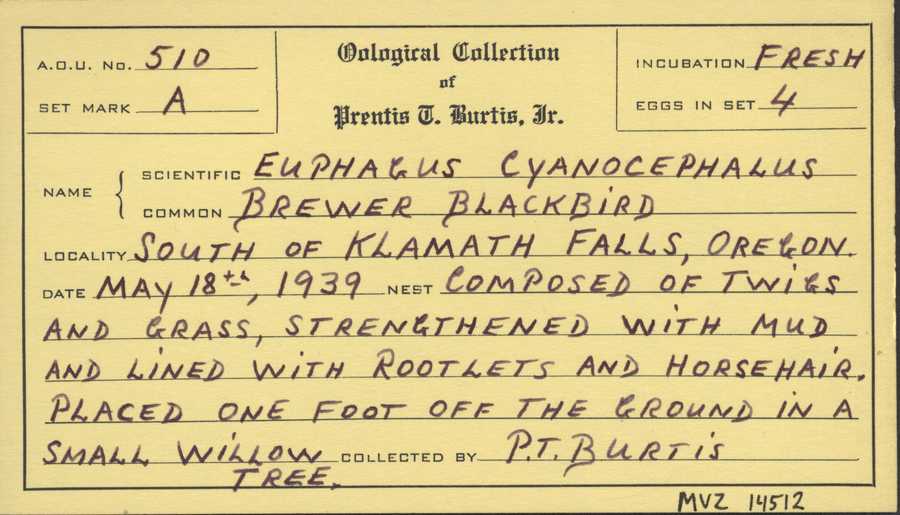 A.O.U. No. 510
Oological Collection
INCUBATION FRESH
SET MARK A
of
EGGS IN SET 4
Prentis T. Burtis, Jr.
NAME
SCIENTIFIC EUPHAGUS CYANOCEPHALUS
COMMON BREWER BLACKBIRD
LOCALITY SOUTH OF KLAMATH FALLS, OREGON.
DATE MAY 18th, 1939 NEST COMPOSED OF TWIGS
AND GRASS, STRENGTHENED WITH MUD
AND LINED WITH ROOTLETS AND HORSEHAIR.
PLACED ONE FOOT OFF THE GROUND IN A
SMALL WILLOW COLLECTED BY P.T. BURTIS
TREE.
MVZ 14512